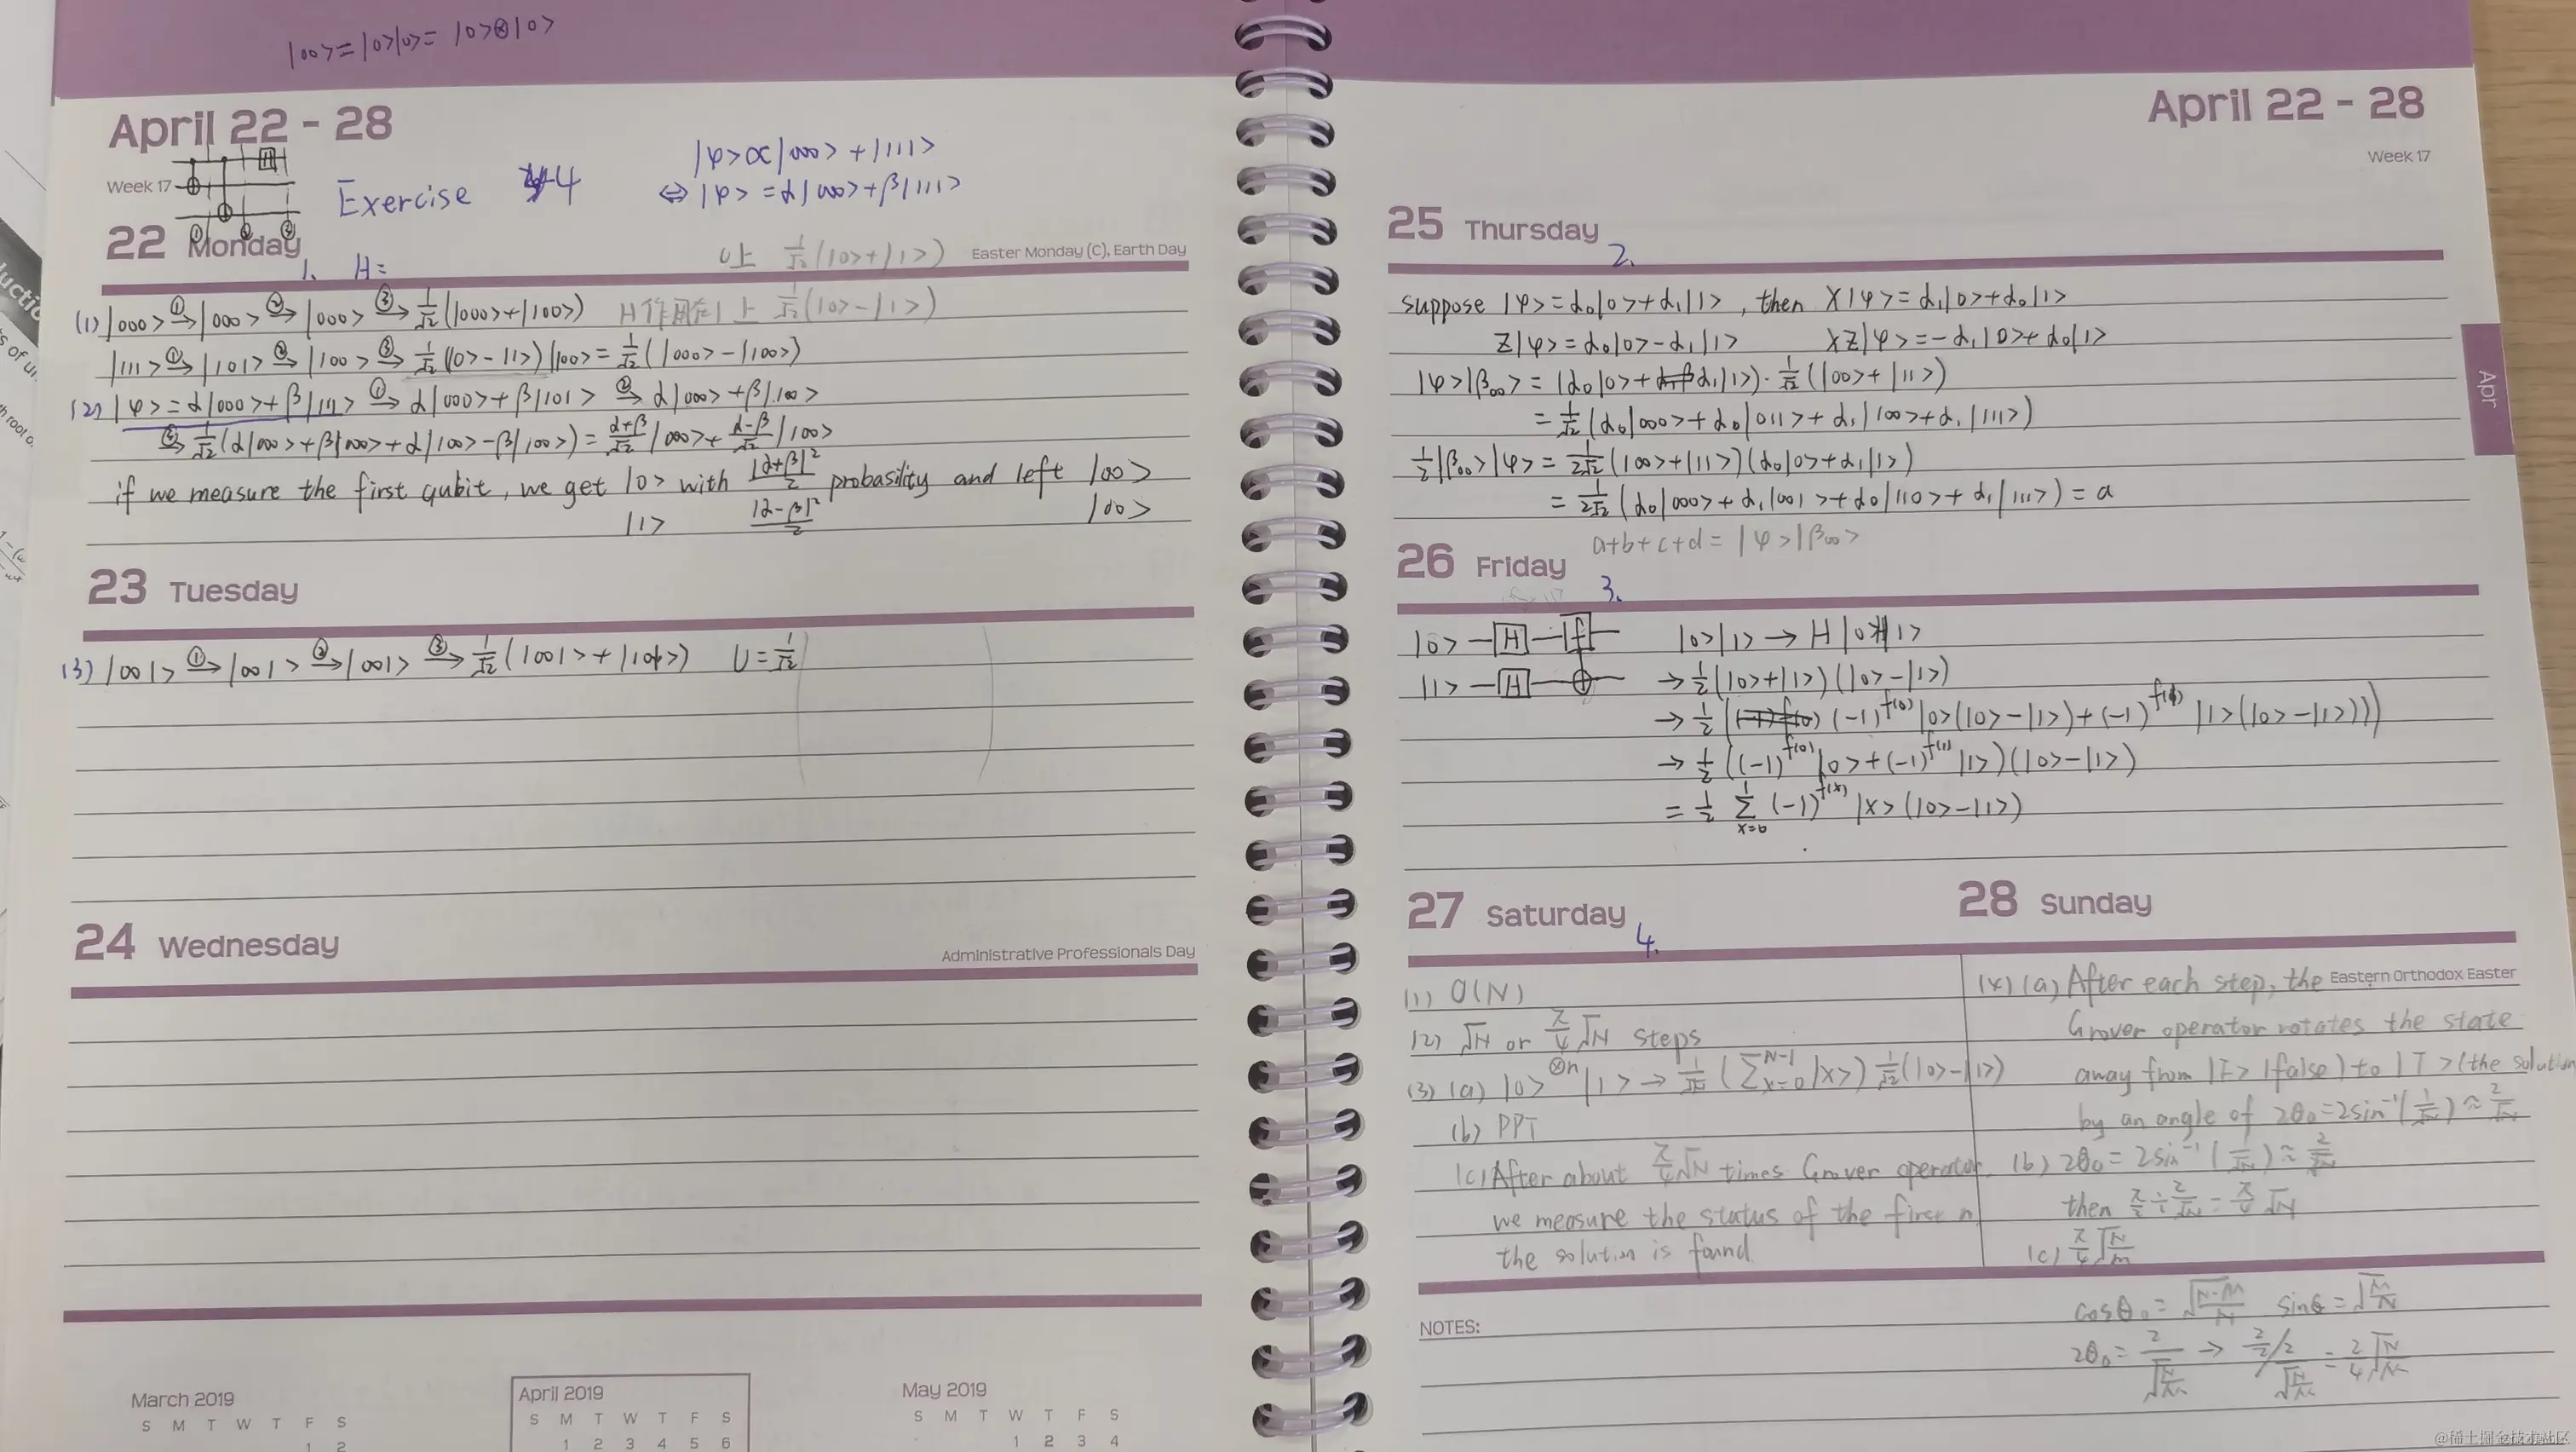 |00>=|0>|0>= |0>⊗|0>
April 22 - 28
Week 17
Exercise 4
|φ>∝|000>+|111>
⇔|φ>=α|000>+β|111>
22 Monday
Easter Monday (C), Earth Day
1. H=
上 1/√2(|0>+|1>)
(1)|000> ①→|000> ②→|000> ③→ 1/√2(|000>+|100>) H作用在1上 1/√2(|0>-|1>)
|111> ①→|101> ②→|100> ③→ 1/√2(|0>-|1>)|00>=1/√2(|000>-|100>)
(2)|φ>=α|000>+β|111> ①→ α|000>+β|101> ②→ α|000>+β|100>
③→ 1/√2(α|000>+β|000>+α|100>-β|100>)=(α+β)/√2|000>+(α-β)/√2|100>
if we measure the first qubit, we get |0> with |α+β|²/2 probasility and left |00>
|1> |α-β|²/2 |00>
23 Tuesday
(3)|001> ①→|001> ②→|001> ③→ 1/√2(|001>+|101>) U=1/√2
24 Wednesday
Administrative Professionals Day
March 2019
S M T W T F S
1 2
April 2019
S M T W T F S
1 2 3 4 5 6
May 2019
S M T W T F S
1 2 3 4
April 22 - 28
Week 17
Apr
25 Thursday
2.
suppose |φ>=α₀|0>+α₁|1>, then X|φ>=α₁|0>+α₀|1>
Z|φ>=α₀|0>-α₁|1> XZ|φ>=-α₁|0>+α₀|1>
|φ>|β₀₀>=(α₀|0>+α₁|1>)·1/√2(|00>+|11>)
=1/√2(α₀|000>+α₀|011>+α₁|100>+α₁|111>)
1/2|β₀₀>|φ>=1/2√2(|00>+|11>)(α₀|0>+α₁|1>)
=1/2√2(α₀|000>+α₁|001>+α₀|110>+α₁|111>)=a
a+b+c+d=|φ>|β₀₀>
26 Friday
3.
|0> H f |0>|1>→H|0>H|1>
|1> H →1/2(|0>+|1>)(|0>-|1>)
→1/2((-1)^f(0)|0>(|0>-|1>)+(-1)^f(1)|1>(|0>-|1>)))
→1/2((-1)^f(0)|0>+(-1)^f(1)|1>)(|0>-|1>)
=1/2 Σ_{x=0}^{1}(-1)^f(x)|x>(|0>-|1>)
27 Saturday
4.
(1) O(N)
(2) √N or π/4√N steps
(3)(a)|0>^⊗n|1>→1/√N(Σ_{x=0}^{N-1}|x>)1/√2(|0>-|1>)
(b) PPT
(c)After about π/4√N times Grover operator,
we measure the status of the first n,
the solution is found.
28 Sunday
Eastern Orthodox Easter
(4)(a)After each step, the
Grover operator rotates the state
away from |F>(false) to |T>(the solution
by an angle of 2θ₀=2sin⁻¹(1/√N)≈2/√N
(b) 2θ₀=2sin⁻¹(1/√N)≈2/√N
then π/2÷2/√N=π/4√N
(c) π/4√(N/m)
NOTES:
cosθ₀=√((N-M)/N) sinθ=√(M/N)
@稀土掘金技术社区